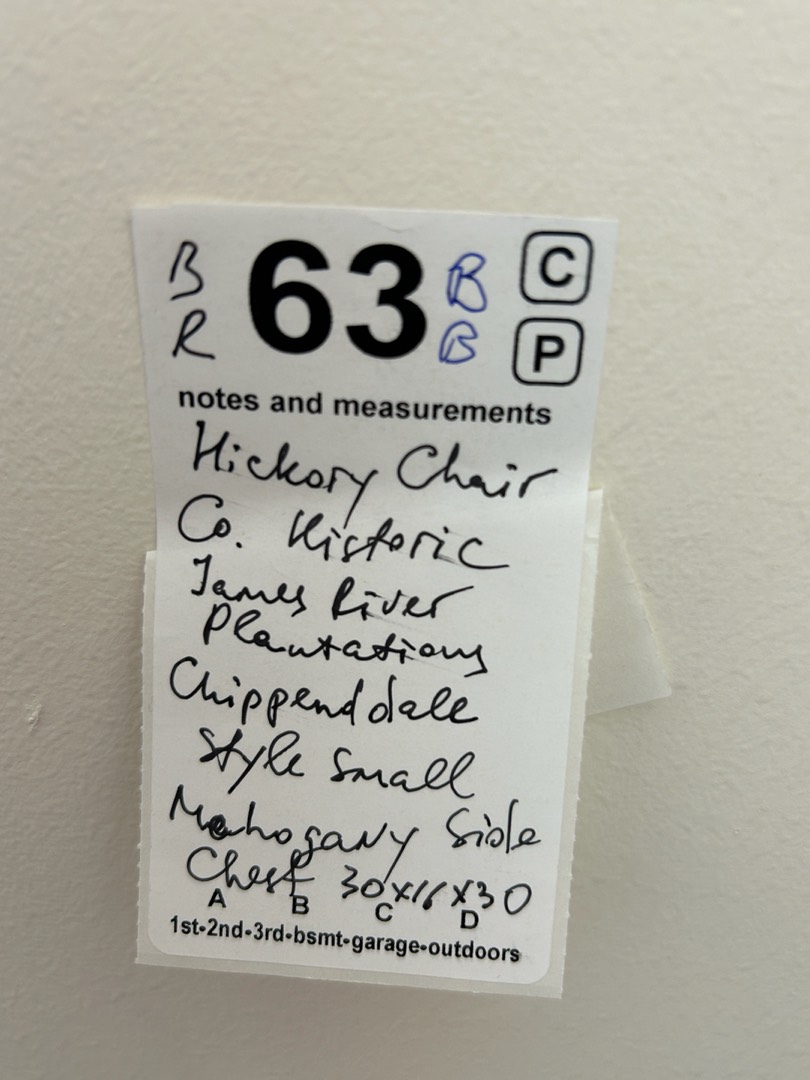 B 63 B C
R B P
notes and measurements
Hickory Chair
Co. Historic
James River
Plantations
Chippenddale
Style Small
Mahogany Side
Chest 30x16x30
A B C D
1st-2nd-3rd-bsmt-garage-outdoors